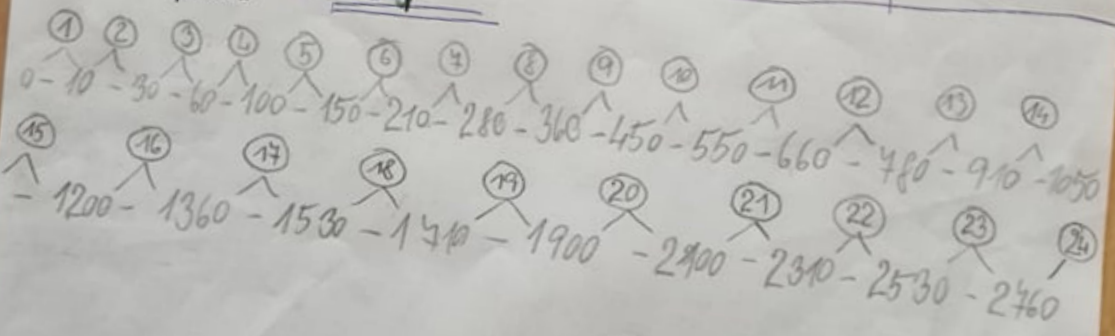 1 2 3 4 5 6 7 8 9 10 11 12 13 14
0 - 10 - 30 - 60 - 100 - 150 - 210 - 280 - 360 - 450 - 550 - 660 - 780 - 910 - 1050
15 16 17 18 19 20 21 22 23 24
- 1200 - 1360 - 1530 - 1710 - 1900 - 2100 - 2310 - 2530 - 2760